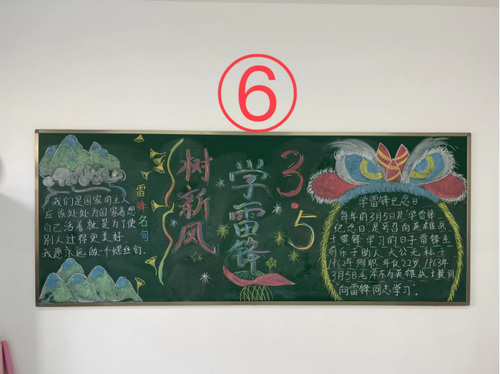 ⑥
我们是国家的主人
应该处处为国家着想
自己活着就是为了使
别人过得更美好
我愿永远做一个螺丝钉
雷锋名句
树新风
学雷锋
3.5
学雷锋纪念日
每年的3月5日是"学雷锋"
纪念日,是号召向英雄战
士雷锋学习的日子雷锋生
前乐于助人、大公无私于
1962年殉职年仅22岁1963年
3月5日毛泽东为英雄战士提词
向雷锋同志学习